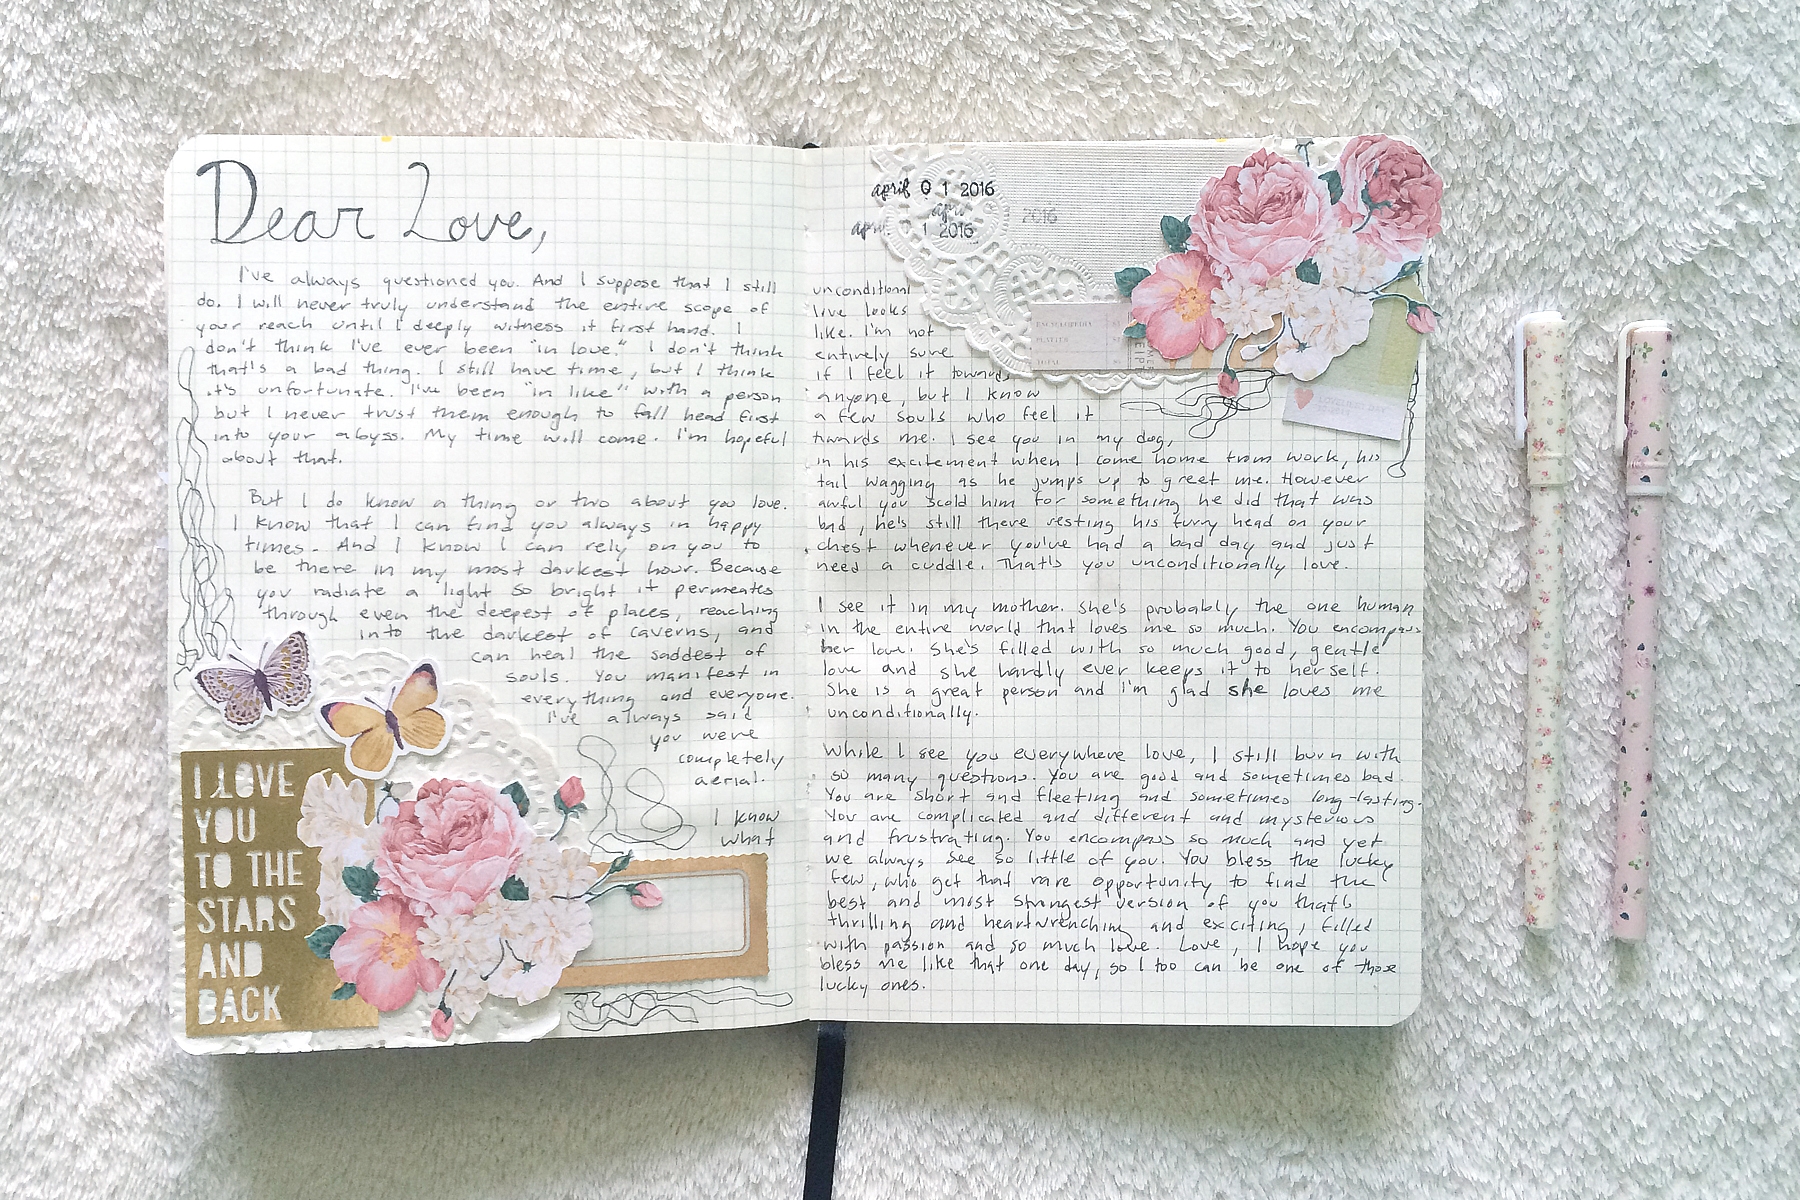 Dear Love,
I've always questioned you. And I suppose that I still
do. I will never truly understand the entire scope of
your reach until I deeply witness it first hand. I
don't think I've ever been "in love." I don't think
that's a bad thing. I still have time, but I think
it's unfortunate. I've been "in like" with a person
but I never trust them enough to fall head first
into your abyss. My time will come. I'm hopeful
about that.
But I do know a thing or two about you love.
I know that I can find you always in happy
times. And I know I can rely on you to
be there in my most darkest hour. Because
you radiate a light so bright it permeates
through even the deepest of places, reaching
into the darkest of caverns, and
can heal the saddest of
souls. You manifest in
everything and everyone.
I've always said
you were
completely
aerial.
I know
what
I LOVE
YOU
TO THE
STARS
AND
BACK
april 0 1 2016
apri 2016
apr 1 2016
unconditional
live looks
like. I'm not
entirely sure
if I feel it towards
anyone, but I know
a few souls who feel it
towards me. I see you in my dog,
in his excitement when I come home from work, his
tail wagging as he jumps up to greet me. However
awful you scold him for something he did that was
bad, he's still there resting his furry head on your
chest whenever you've had a bad day and just
need a cuddle. That's you unconditionally love.
I see it in my mother. She's probably the one human
in the entire world that loves me so much. You encompass
her love. She's filled with so much good, gentle
love and she hardly ever keeps it to herself.
She is a great person and I'm glad she loves me
unconditionally.
While I see you everywhere love, I still burn with
so many questions. You are good and sometimes bad.
You are short and fleeting and sometimes long-lasting.
You are complicated and different and mysterious
and frustrating. You encompass so much and yet
we always see so little of you. You bless the lucky
few, who get that rare opportunity to find the
best and most strongest version of you that's
thrilling and heartwrenching and exciting, filled
with passion and so much love. Love, I hope you
bless me like that one day, so I too can be one of those
lucky ones.
ENCYCLOPEDIA
TOTAL